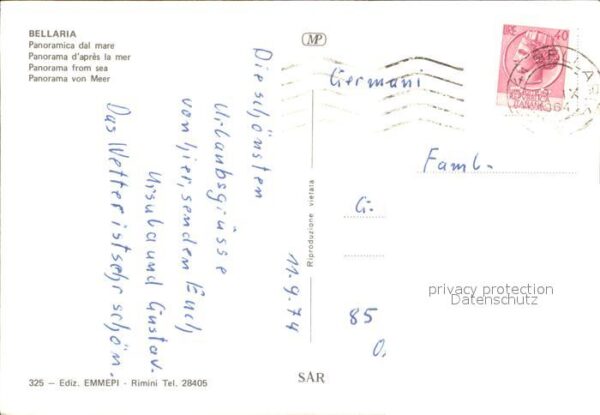 BELLARIA
Panoramica dal mare
Panorama d'après la mer
Panorama from sea
Panorama von Meer
MP
Die schönsten
Urlaubsgrüsse
von hier, senden Euch
Ursula und Gustav.
Das Wetter ist sehr schön.
11.9.74
Riproduzione vietata
Germani
LIRE 40
Faml.
G.
privacy protection
Datenschutz
85
O.
325 – Ediz. EMMEPI - Rimini Tel. 28405
SAR